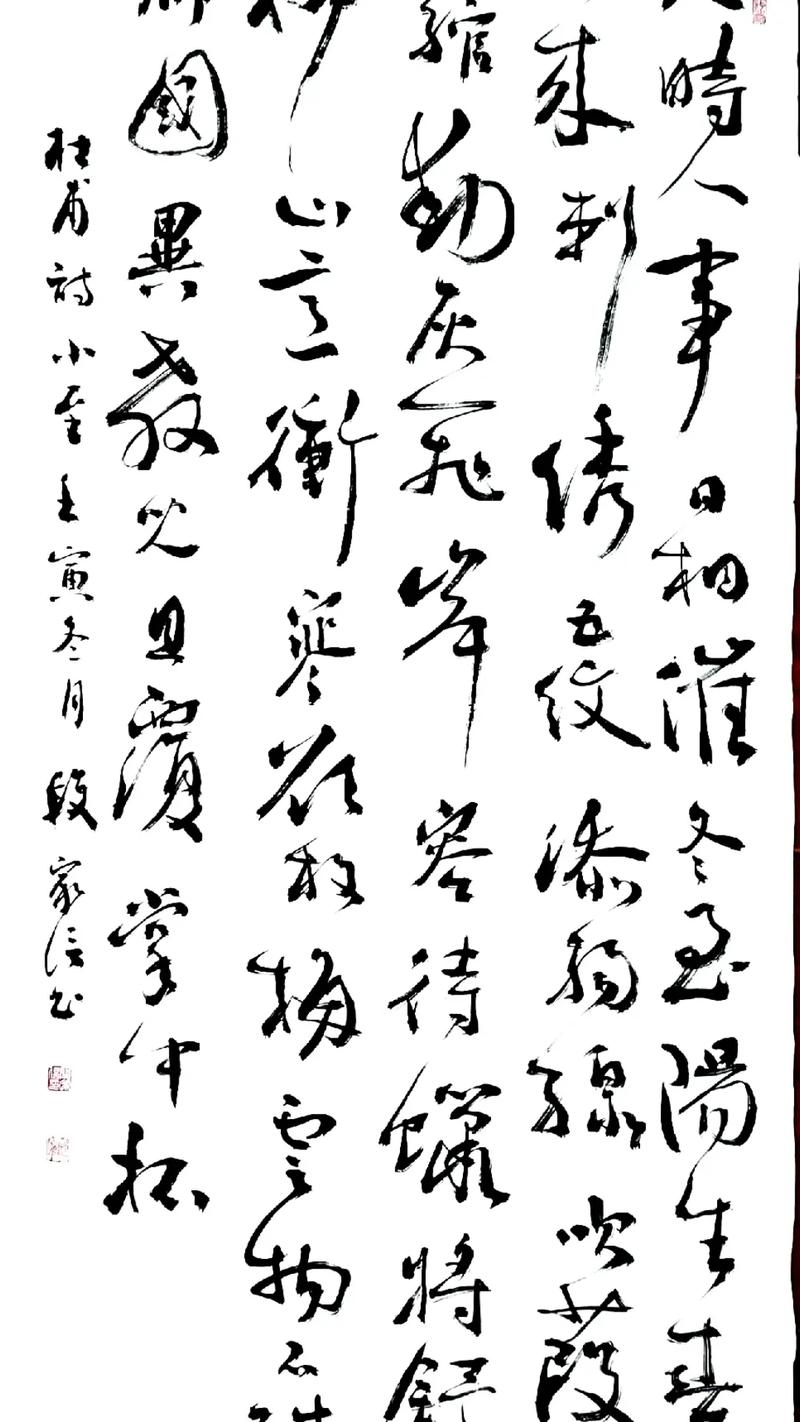 天時人事日相催冬至陽生春
來刺綉五紋添弱線吹葭
綰動灰飛岸容待蠟將舒
柳山意衝寒欲放梅雲物不殊
鄉國異教兒且覆掌中杯
杜甫詩小至壬寅冬月段家信书